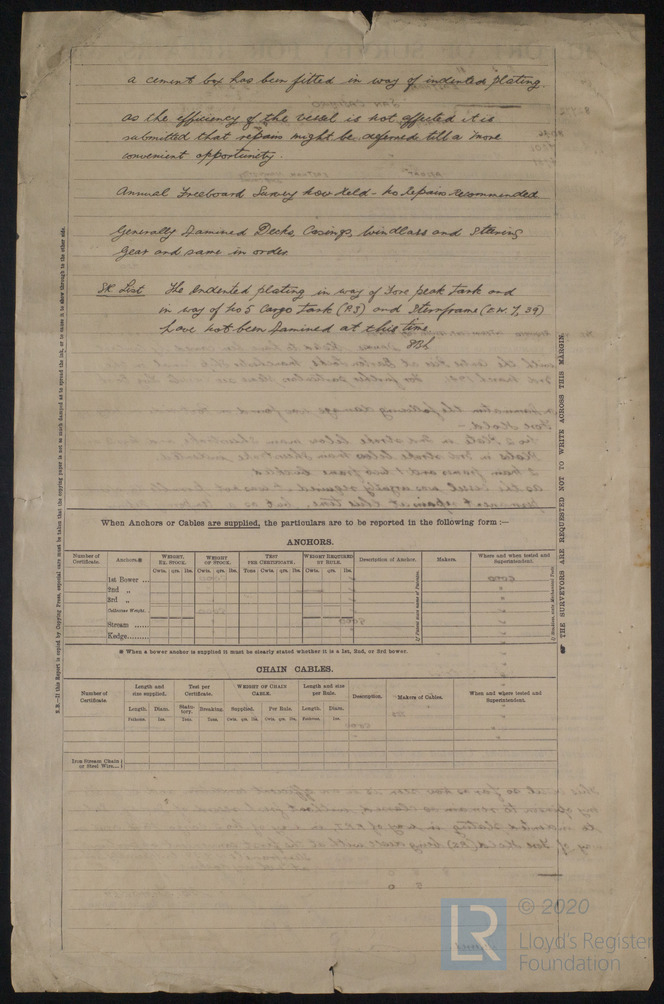 a cement box has been fitted in way of indented plating.
as the efficiency of the vessel is not affected it is
submitted that repairs might be deferred till a more
convenient opportunity.
Annual Freeboard Survey now held - no repairs recommended
Generally Examined Decks, Casings, windlass and Steering
gear and same in order.
The indented plating in way of Fore peak tank and
in way of No 5 Cargo Tank (P.S) and Sternframe
have not been Examined at this time
When Anchors or Cables are supplied, the particulars are to be reported in the following form :—
ANCHORS.
Number of Certificate. Anchors.* WEIGHT, EX. STOCK. WEIGHT OF STOCK. TEST PER CERTIFICATE. WEIGHT REQUIRED BY RULE. Description of Anchor. Makers. Where and when tested and Superintendent.
Cwts. qrs. lbs. Cwts. qrs. lbs. Tons Cwts. qrs. lbs. Cwts. qrs. lbs.
1st Bower ...
2nd „
3rd „
Collective Weight.
Stream ......
Kedge.........
* When a bower anchor is supplied it must be clearly stated whether it is a 1st, 2nd, or 3rd bower.
CHAIN CABLES.
Number of Certificate. Length and size supplied. Test per Certificate. WEIGHT OF CHAIN CABLE. Length and size per Rule. Description. Makers of Cables. When and where tested and Superintendent.
Length. Diam. Statutory. Breaking. Supplied. Per Rule. Length. Diam.
Fathoms. Ins. Tons. Tons. Cwts. qrs. lbs. Cwts. qrs. lbs. Fathoms. Ins.
Iron Stream Chain or Steel Wire...
THE SURVEYORS ARE REQUESTED NOT TO WRITE ACROSS THIS MARGIN
© 2020
LR
Lloyd's Register
Foundation